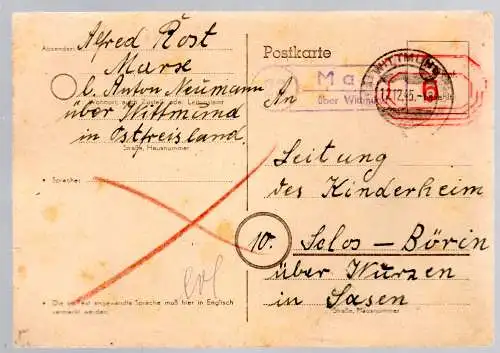 Absender: Alfred Rost
Marse
b. Anton Neumann
Wohnort, auch Zustell- oder Leitpostamt
über Wittmund
in Ostfreisland.
Straße, Hausnummer
Sprache:
Die zur Text angewandte Sprache muß hier in Englisch
vermerkt werden.
Postkarte
WITTMUND
17.12.45.
6
Ma
über Wittmund
An
Leitung
des Kinderheim
10. Selos – Börin
über Wurzen
in Sasen
Straße, Hausnummer